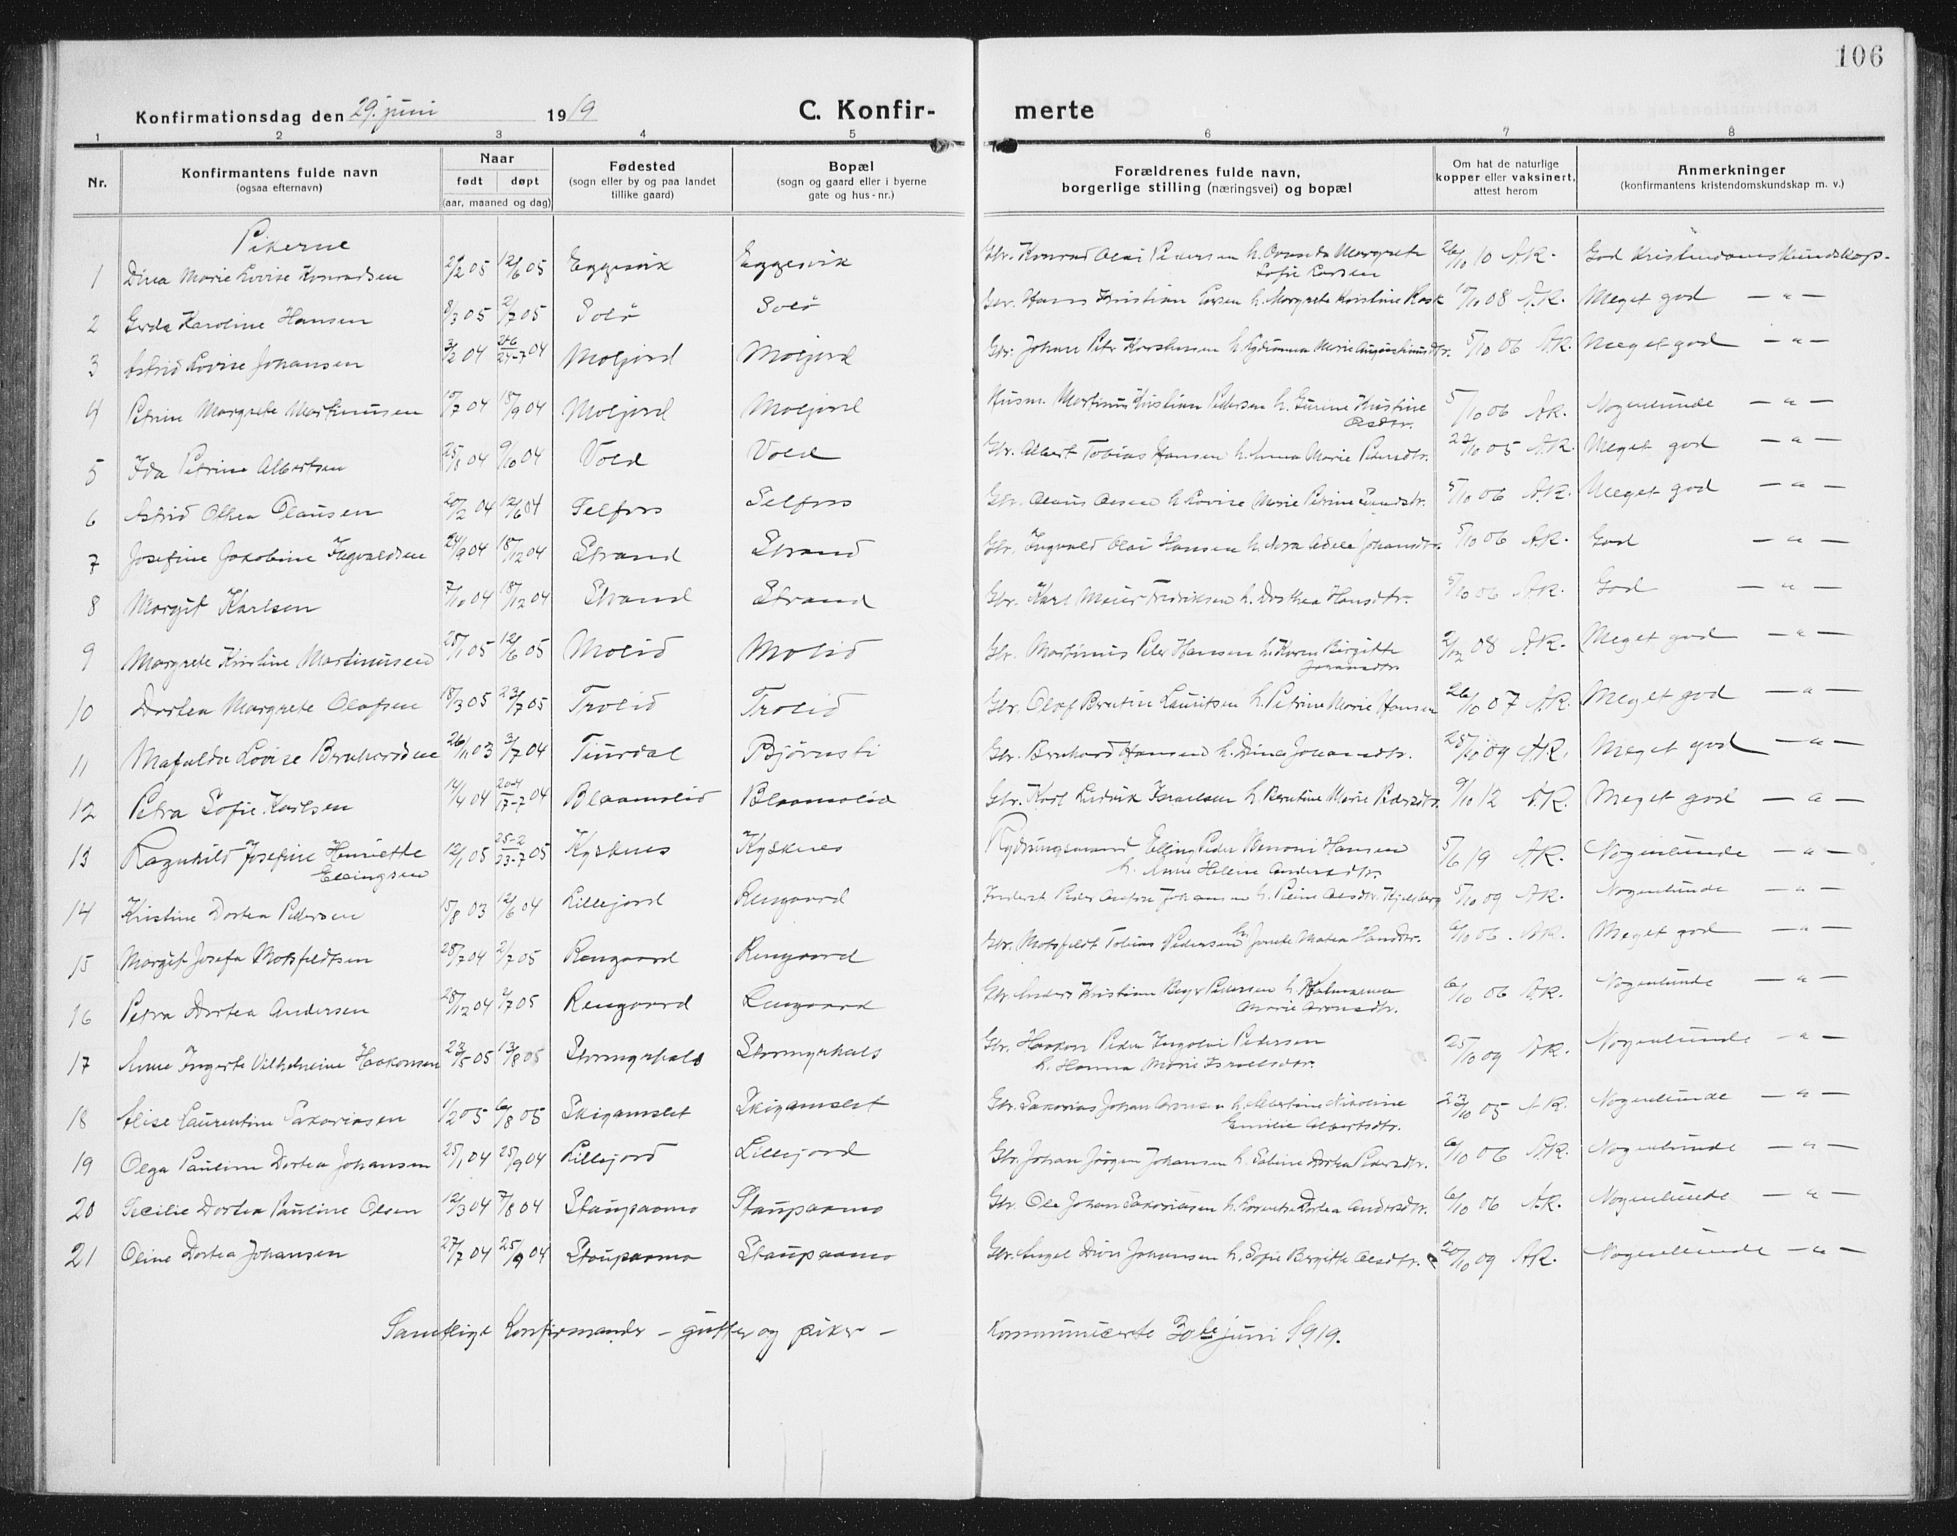 106
Konfirmationsdag den 29. juni 1919 C. Konfir- merte
1 2 3 4 5 6 7 8
Nr. Konfirmantens fulde navn (ogsaa efternavn) Naar født døpt (aar, maaned og dag) Fødested (sogn eller by og paa landet tillike gaard) Bopæl (sogn og gaard eller i byerne gate og hus-nr.) Forældrenes fulde navn, borgerlige stilling (næringsvei) og bopæl Om hat de naturlige kopper eller vaksinert, attest herom Anmerkninger (konfirmantens kristendomskundskap m. v.)
Pikerne
1 Dina Marie Lovise Konradsen 2/2 05 12/6 05 Eggesvik Eggesvik Gbr. Konrad Olai Pedersen h. Margrete Sofie Larsen 26/10 10 A.R. God Kristendomskundskap.
2 Gerda Karoline Hansen 8/3 05 2/7 05 Solø Solø Gbr. Hans Kristian Larsen h. Margrete Kristine Rask 10/10 08 A.R. Meget god — " —
3 Astrid Lovise Johansen 3/2 04 24-7 04 Moljord Moljord Gbr. Johan Peter h. Marie 5/10 06 A.R. Meget god — " —
4 Petrine Margrete Martinussen 10/7 04 18/9 04 Moljord Moljord Husm. Martinus Kristian Pedersen h. Gurine Kristine Olsdtr. 5/10 06 A.R. Nogenlunde — " —
5 Ida Petrine Albertsen 25/8 04 9/10 04 Vold Vold Gbr. Albert Tobias Hansen h. Anna Marie Pedersdtr. 27/10 05 A.R. Meget god — " —
6 Astrid Olhea Clausen 20/2 04 12/6 04 Selfors Selfors Gbr. Claus Olsen h. Lovise Marie Petrine 5/10 06 A.R. Meget god — " —
7 Josefine Jakobine Ingvaldsen 24/9 04 18/12 04 Strand Strand Gbr. Ingvald Olai Hansen h. Nora Adele Johansdtr. 5/10 06 A.R. God — " —
8 Margit Karlsen 7/10 04 18/12 04 Strand Strand Gbr. Karl Meier Fredriksen h. Dorthea Hansdtr. 5/10 06 A.R. God — " —
9 Margrete Kristine Martinussen 25/1 05 12/6 05 Molid Molid Gbr. Martinus Peter Hansen h. Karen Birgitte Johansdtr. 2/12 08 A.R. Meget god — " —
10 Dortea Margrete Olafsen 18/3 05 23/7 05 Trolid Trolid Gbr. Olaf Berntin Lauritsen h. Petrine Marie Hansen 26/10 07 A.R. Meget god — " —
11 Mafalda Lovise Bernhardsen 26/11 03 3/7 04 Tiurdal Bjørnsti Gbr. Bernhard Hansen h. Dina Johansdtr. 25/10 09 A.R. Meget god — " —
12 Petra Sofie Karlsen 14/4 04 20-4 17-7 04 Blaamolid Blaamolid Gbr. Karl Ludvik Israelsen h. Berntine Marie Pedersdtr. 9/10 12 A.R. Meget god — " —
13 Ragnhild Josefine Henriette Ellingsen 12/1 05 25-2 23-7 05 Kjelsnes Rydningsmand Elling Peder Benoni Hansen h. Anne Helene Andersdtr. 5/6 19 A.R. Nogenlunde — " —
14 Kristine Dortea Pedersen 15/8 03 12/6 04 Lillejord Rengaard Inderst Peder Johansen h. Olsdtr. 5/10 09 A.R. Nogenlunde — " —
15 Margit Josefa Motsfeldtsen 28/7 04 2/7 05 Rengaard Rengaard Gbr. Motsfeldt Tobias Pedersen h. Matea Hansdtr. 6/10 06 A.R. Meget god — " —
16 Petra Dortea Andersen 28/12 04 2/7 05 Rengaard Rengaard Gbr. Anders Kristian Pedersen h. Marie Aronsdtr. 6/10 06 A.R. Nogenlunde — " —
17 Anne Ingerte Vilhelmine Haakonsen 23/5 05 13/8 05 Gbr. Haakon Peder Ingolvi Pedersen h. Hanna Marie Israelsdtr. 25/10 09 A.R. Nogenlunde — " —
18 Alise Laurentine Sakariasen 1/2 05 6/8 05 Skigamslet Skigamslet Gbr. Sakarias Johan h. Albertine Nikoline Emilie Albertsdtr. 23/10 05 A.R. Nogenlunde — " —
19 Olga Pauline Dortea Johansen 25/1 04 25/9 04 Lillejord Lillejord Gbr. Johan Jörgen Johansen h. Sabine Dortea Pedersdtr. 6/10 06 A.R. Nogenlunde — " —
20 Secilie Dortea Pauline Olsen 12/3 04 7/8 04 Staupaamo Staupaamo Gbr. Ole Johan Sakariasen h. Dortea Andersdtr. 6/10 06 A.R. Nogenlunde — " —
21 Oline Dortea Johansen 27/7 04 25/9 04 Staupaamo Staupaamo Gbr. Angel Johansen h. Sofie Birgitte Olsdtr. 20/10 09 A.R. Nogenlunde — " —
Samtlige Konfirmander – gutter og piker – Kommunicerte 30te juni 1919.